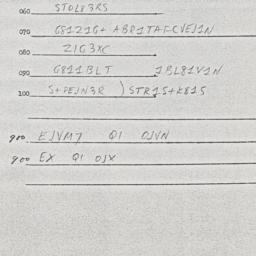 060 STOL83RS
070 G81Z1G+ ABR1TAFCVEJ1N
080 Z1G3XC
090 G811BLT 1BL81V1N
100 S+PEJN3R ) STR15+K815
900 EJVM7 Q1 OJVN
900 EX Q1 OJX